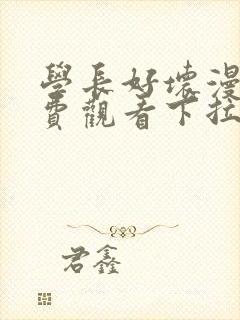 學長好壞漫
費觀看下拉
君鑫